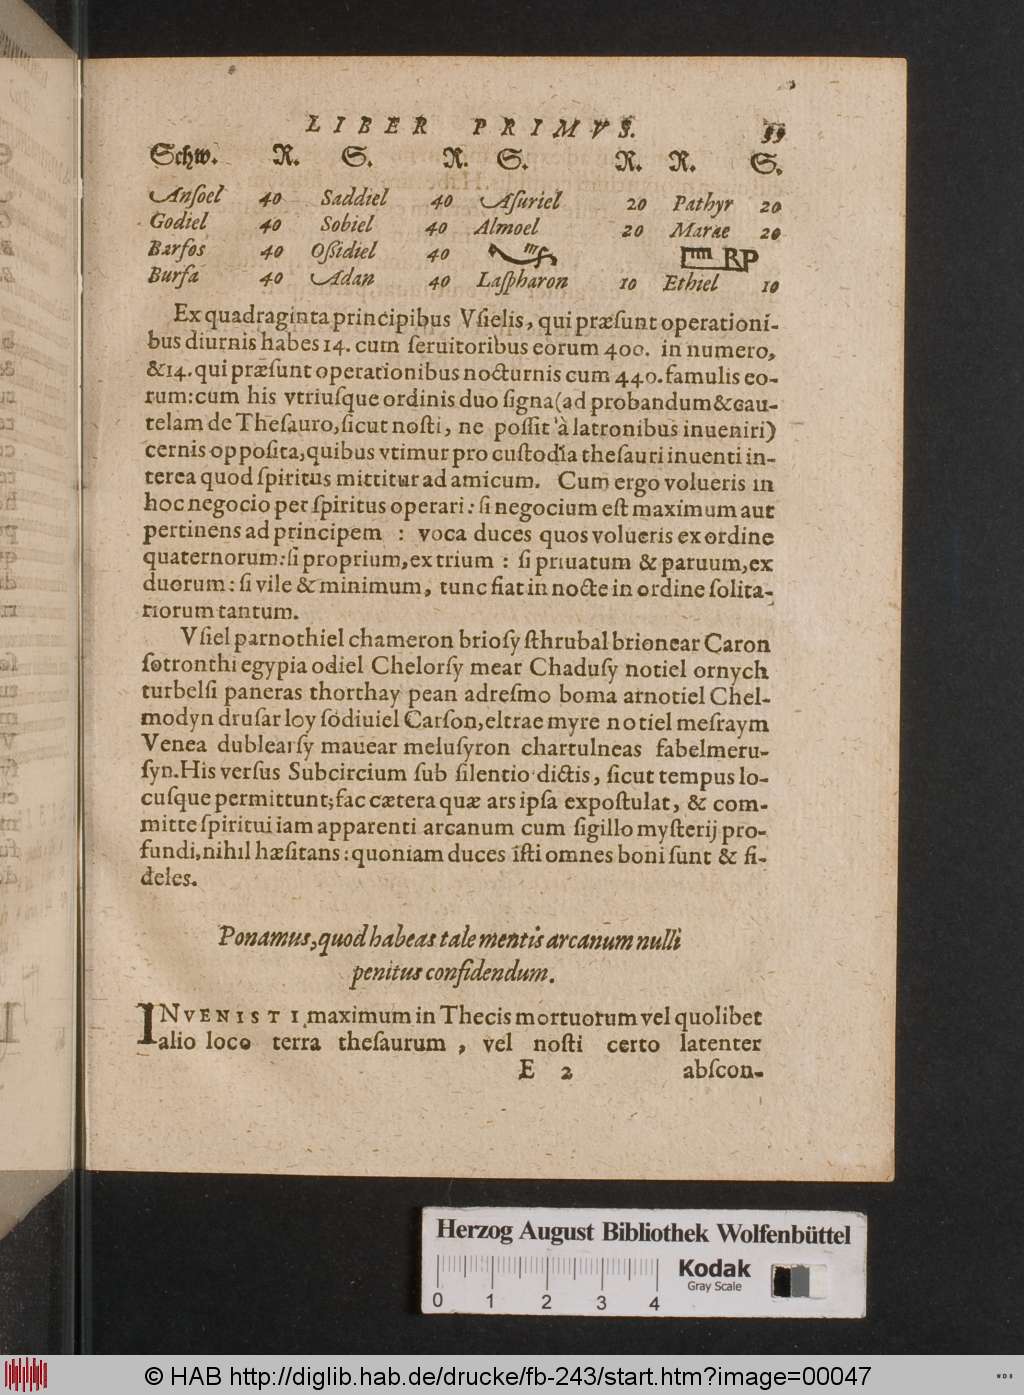 LIBER PRIMVS. 35
Schw. R. S. R. S. R. R. S.
Anſoel 40 Saddiel 40 Aſuriel 20 Pathyr 20
Godiel 40 Sobiel 40 Almoel 20 Marae 20
Barfos 40 Oßidiel 40
Burfa 40 Adan 40 Laſpharon 10 Ethiel 10
Ex quadraginta principibus Vſielis, qui præſunt operationi-
bus diurnis habes 14. cum ſeruitoribus eorum 400. in numero,
&14. qui præſunt operationibus nocturnis cum 440. famulis eo-
rum: cum his vtriuſque ordinis duo ſigna (ad probandum & cau-
telam de Theſauro, ſicut noſti, ne poſſit à latronibus inueniri)
cernis oppoſita, quibus vtimur pro cuſtodia theſauri inuenti in-
terea quod ſpiritus mittitur ad amicum. Cum ergo volueris in
hoc negocio per ſpiritus operari: ſi negocium eſt maximum aut
pertinens ad principem : voca duces quos volueris ex ordine
quaternorum: ſi proprium, ex trium : ſi priuatum & paruum, ex
duorum: ſi vile & minimum, tunc fiat in nocte in ordine ſolita-
riorum tantum.
Vſiel parnothiel chameron brioſy ſthrubal brionear Caron
ſotronthi egypia odiel Chelorſy mear Chaduſy notiel ornych
turbelſi paneras thorthay pean adreſmo boma arnotiel Chel-
modyn druſar loy ſodiuiel Carſon, eltrae myre notiel meſraym
Venea dublearſy mauear meluſyron chartulneas fabelmeru-
ſyn. His verſus Subcircium ſub ſilentio dictis, ſicut tempus lo-
cuſque permittunt; fac cætera quæ ars ipſa expoſtulat, & com-
mitte ſpiritui iam apparenti arcanum cum ſigillo myſterij pro-
fundi, nihil hæſitans: quoniam duces iſti omnes boni ſunt & fi-
deles.
Ponamus, quod habeas tale mentis arcanum nulli
penitus confidendum.
INVENISTI maximum in Thecis mortuorum vel quolibet
alio loco terra theſaurum , vel noſti certo latenter
E 2 abſcon-
Herzog August Bibliothek Wolfenbüttel
Kodak
Gray Scale
0 1 2 3 4
© HAB http://diglib.hab.de/drucke/fb-243/start.htm?image=00047